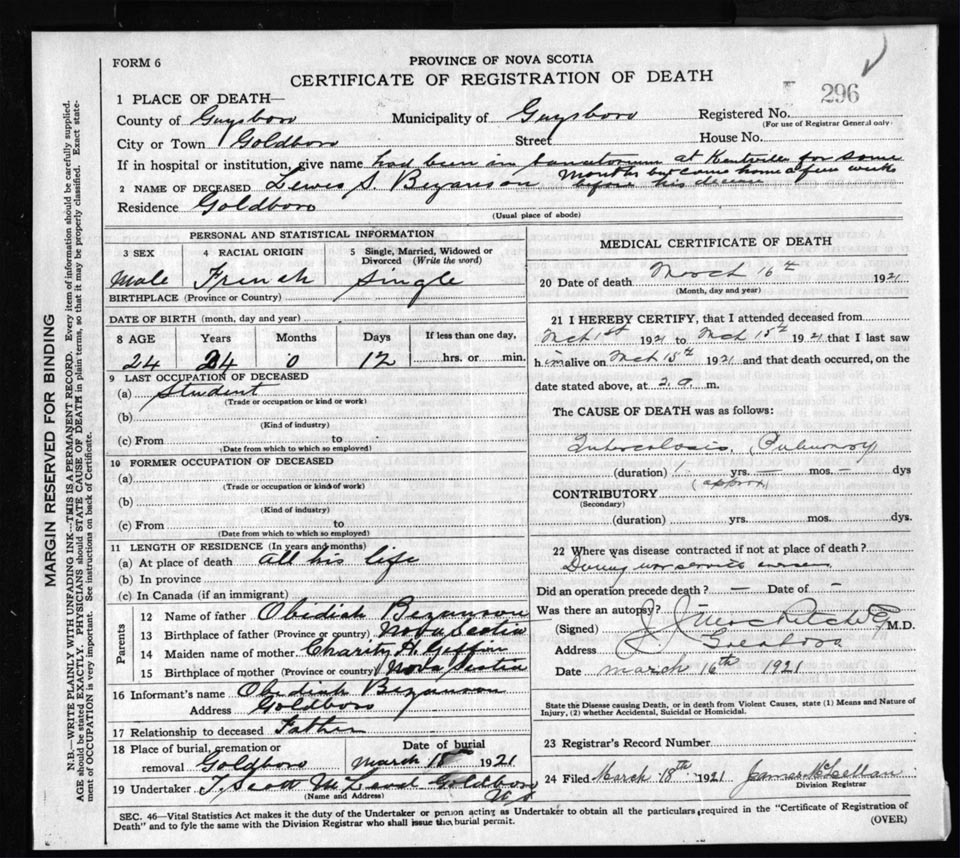 FORM 6
PROVINCE OF NOVA SCOTIA
CERTIFICATE OF REGISTRATION OF DEATH
296
1 PLACE OF DEATH—
County of Guysboro Municipality of Guysboro Registered No.
(For use of Registrar General only)
City or Town Goldboro Street House No.
If in hospital or institution, give name had been in sanatorium at Kentville for some
months but came home a few weeks
before his decease
2 NAME OF DECEASED Lewis S. Bezanson
Residence Goldboro
(Usual place of abode)
PERSONAL AND STATISTICAL INFORMATION
3 SEX 4 RACIAL ORIGIN 5 Single, Married, Widowed or Divorced (Write the word)
Male French Single
BIRTHPLACE (Province or Country)
DATE OF BIRTH (month, day and year)
8 AGE Years Months Days If less than one day,
24 24 0 12 hrs. or min.
9 LAST OCCUPATION OF DECEASED
(a) Student
(Trade or occupation or kind or work)
(b)
(Kind of industry)
(c) From to
(Date from which to which so employed)
10 FORMER OCCUPATION OF DECEASED
(a)
(Trade or occupation or kind of work)
(b)
(Kind of industry)
(c) From to
(Date from which to which so employed)
11 LENGTH OF RESIDENCE (In years and months)
(a) At place of death all his life
(b) In province
(c) In Canada (if an immigrant)
Parents
12 Name of father Obidiah Bezanson
13 Birthplace of father (Province or country) Nova Scotia
14 Maiden name of mother Charity H. Giffin
15 Birthplace of mother (Province or country) Nova Scotia
16 Informant's name Obidiah Bezanson
Address Goldboro
17 Relationship to deceased Father
18 Place of burial, cremation or removal Goldboro Date of burial March 18th 1921
19 Undertaker T. Scott McLeod Goldboro
(Name and Address)
N.S.
MEDICAL CERTIFICATE OF DEATH
20 Date of death March 16th 1921
(Month, day and year)
21 I HEREBY CERTIFY, that I attended deceased from
Mch 1st 1921 to Mch 15th 1921 that I last saw
him alive on Mch 15th 1921 and that death occurred, on the
date stated above, at 2 a m.
The CAUSE OF DEATH was as follows:
Tuberculosis, Pulmonary
(duration) 1 yrs. — mos. — dys
(approx)
CONTRIBUTORY
(Secondary)
(duration) yrs. mos. dys.
22 Where was disease contracted if not at place of death?
During war service
Did an operation precede death? — Date of —
Was there an autopsy? —
(Signed) M.D.
Address
Date March 16th 1921
State the Disease causing Death, or in death from Violent Causes, state (1) Means and Nature of
Injury, (2) whether Accidental, Suicidal or Homicidal.
23 Registrar's Record Number
24 Filed March 18th 1921 James McLellan
Division Registrar
SEC. 46—Vital Statistics Act makes it the duty of the Undertaker or person acting as Undertaker to obtain all the particulars required in the "Certificate of Registration of
Death" and to fyle the same with the Division Registrar who shall issue the burial permit.
(OVER)
MARGIN RESERVED FOR BINDING
N.B.—WRITE PLAINLY WITH UNFADING INK—THIS IS A PERMANENT RECORD. Every item of information should be carefully supplied.
AGE should be stated EXACTLY. PHYSICIANS should STATE CAUSE OF DEATH in plain terms, so that it may be properly classified. Exact state-
ment of OCCUPATION is very important. See instructions on back of Certificate.